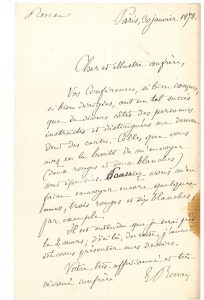 Renan
Paris, 30 janvier 1878.
Cher et illustre confrère,
Vos Conférences, si bien conçues,
si bien dirigées, ont un tel succès
que de divers côtés des personnes
instruites et distinguées me deman-
dent des cartes. Celles que vous
avez eu la bonté de m'envoyer
(deux rouges et deux blanches)
sont épuisées. Pourriez-vous m'en
faire envoyer encore quelques-
unes, trois rouges et dix blanches,
par exemple.
Il est entendu que je serai prêt
le 2 mars; d'ici là, du reste, j'aurai
à vous présenter mes devoirs.
Votre très affectionné et très
dévoué confrère
E. Renan